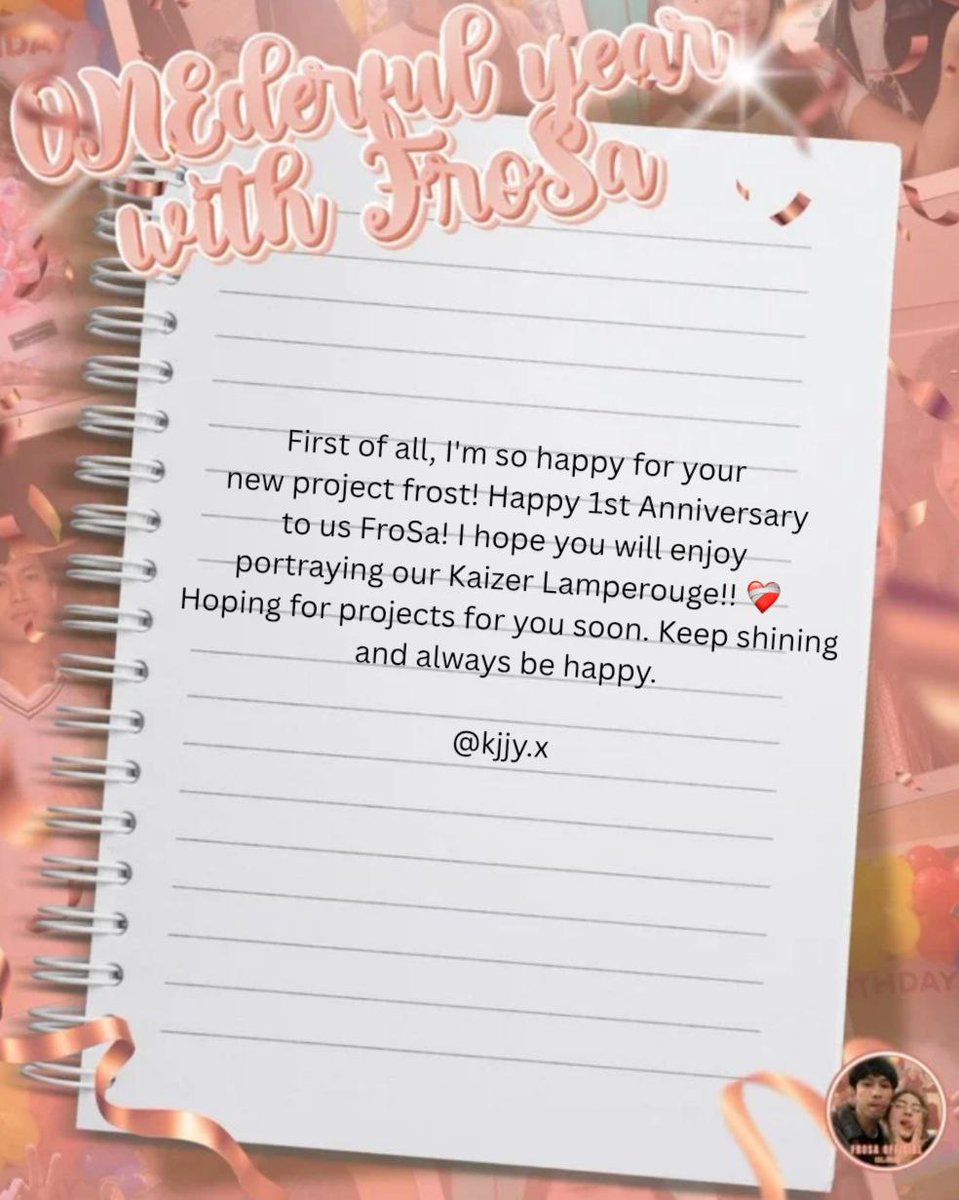 ONEderful year
with FroSa
First of all, I'm so happy for your
new project frost! Happy 1st Anniversary
to us FroSa! I hope you will enjoy
portraying our Kaizer Lamperouge!! ❤️‍🩹
Hoping for projects for you soon. Keep shining
and always be happy.
@kjjy.x
THDAY
FROSA OFFICIAL